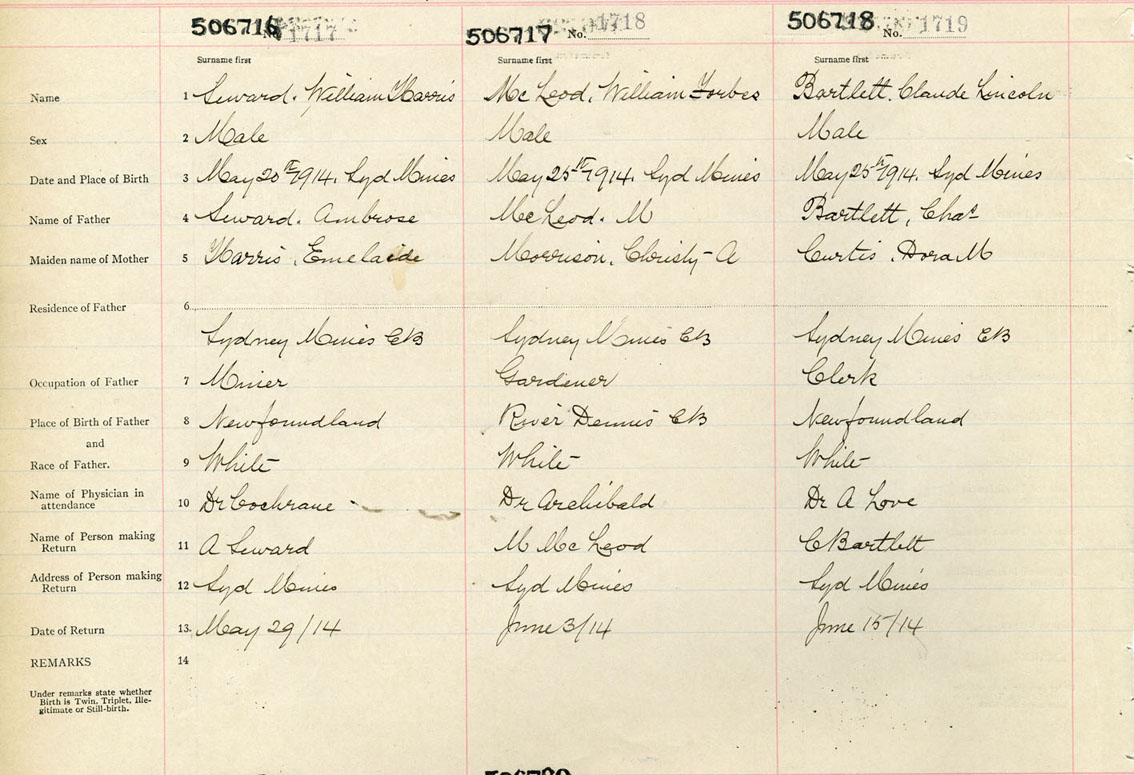 506716 No. 1717 506717 No. 1718 506718 No. 1719
Surname first Surname first Surname first
Name 1 Seward. William Harris McLeod, William Forbes Bartlett. Claude Lincoln
Sex 2 Male Male Male
Date and Place of Birth 3 May 20th 1914. Syd Mines May 25th 1914. Syd Mines May 25th 1914. Syd Mines
Name of Father 4 Seward. Ambrose McLeod. M Bartlett, Chas
Maiden name of Mother 5 Harris, Emelaide Morrison, Christy-A Curtis, Dora M
Residence of Father 6
Sydney Mines CB Sydney Mines CB Sydney Mines CB
Occupation of Father 7 Miner Gardener Clerk
Place of Birth of Father 8 Newfoundland River Dennis CB Newfoundland
and
Race of Father. 9 White White White
Name of Physician in
attendance 10 Dr Cochrane Dr Archibald Dr A Love
Name of Person making
Return 11 A Seward M McLeod C Bartlett
Address of Person making
Return 12 Syd Mines Syd Mines Syd Mines
Date of Return 13. May 29/14 June 3/14 June 15/14
REMARKS 14
Under remarks state whether
Birth is Twin, Triplet, Ille-
gitimate or Still-birth.